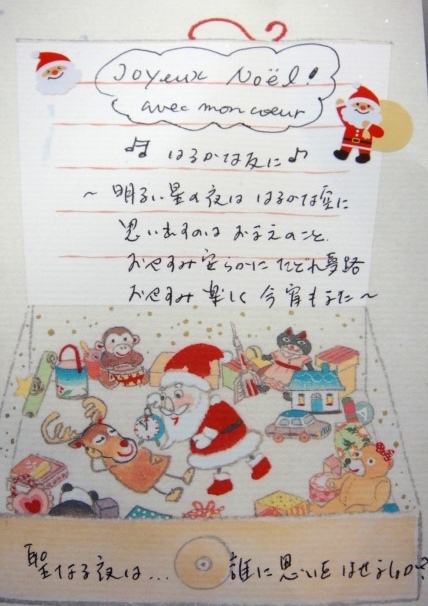 Joyeux Noël!
avec mon coeur
♫ はるかな友に ♪
～明るい星の夜は はるかな空に
思い出すのは おまえのこと
おやすみ安らかに たどれ夢路
おやすみ 楽しく 今宵もまた～
聖なる夜は... 誰に思いをはせようか?